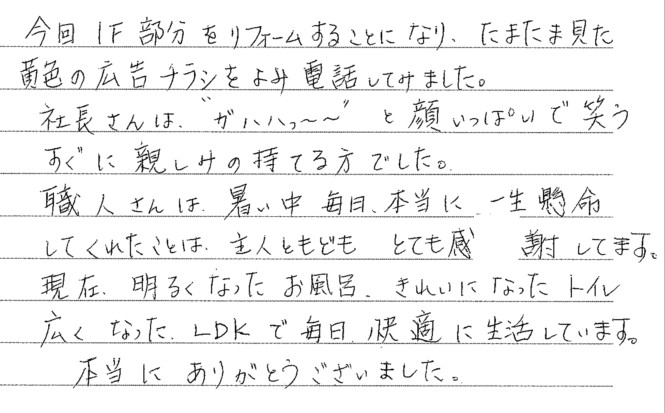 今回 1F 部分をリフォームすることになり、たまたま見た
黄色の広告チラシをよみ電話してみました。
社長さんは、“ガハハハっ～～”と顔いっぱいで笑う
すぐに親しみの持てる方でした。
職人さんは、暑い中毎日、本当に一生懸命
してくれたことは、主人ともども とても感 謝してます。
現在、明るくなったお風呂、きれいになったトイレ
広くなった、LDKで毎日、快適に生活しています。
本当にありがとうございました。